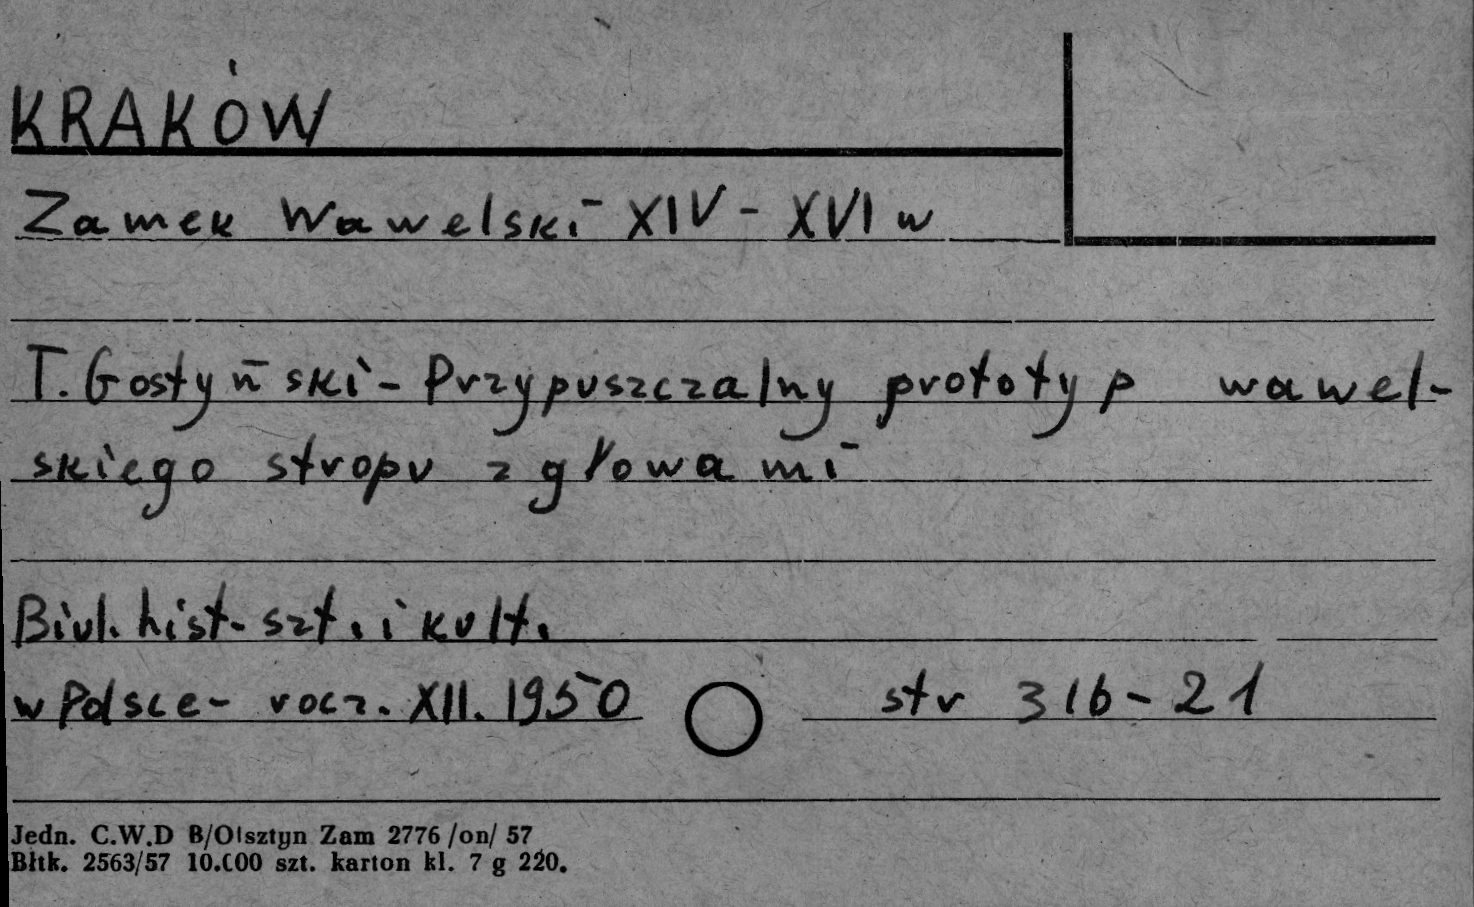 KRAKÓW
Zamek Wawelski XIV - XVI w
T. Gostyński - Przypuszczalny prototyp wawel-
skiego stropu z głowami
Biul. hist. szt. i kult.
w Polsce - rocz. XII. 1950 str 316-21
Jedn. C.W.D B/Olsztyn Zam 2776 /on/ 57
Bltk. 2563/57 10.000 szt. karton kl. 7 g 220.